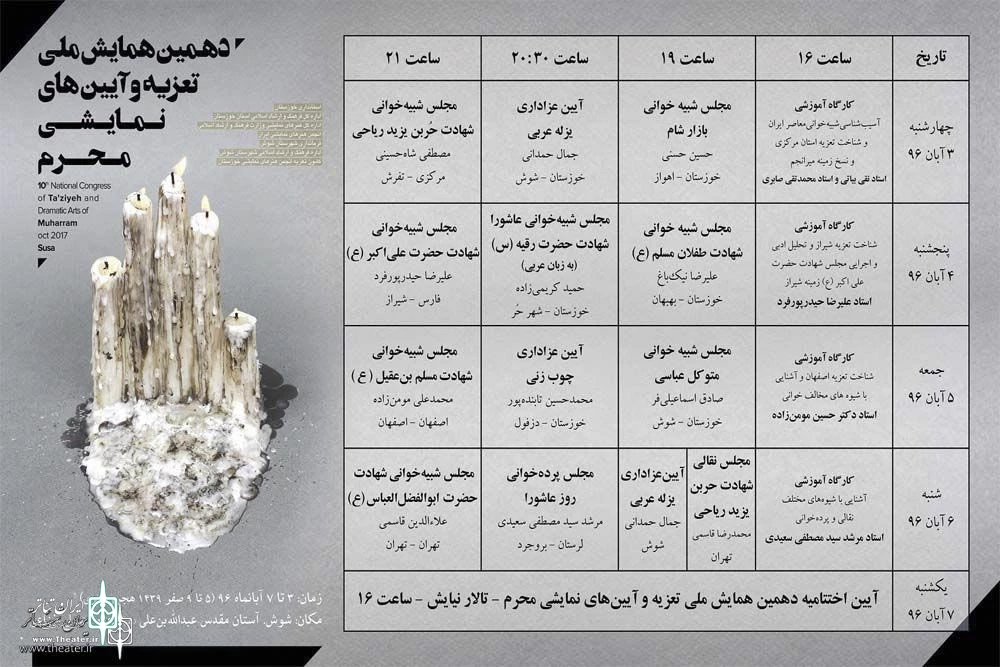 دهمین همایش ملی
تعزیه و آیین‌های
نمایشی
محرم
10th National Congress
of Ta'ziyeh and
Dramatic Arts of
Muharram
oct 2017
Susa
استانداری خوزستان
اداره کل فرهنگ و ارشاد اسلامی استان خوزستان
اداره کل هنرهای نمایشی وزارت فرهنگ و ارشاد اسلامی
انجمن هنرهای نمایشی ایران
فرمانداری شهرستان شوش
اداره فرهنگ و ارشاد اسلامی شهرستان شوش
کانون تعزیه انجمن هنرهای نمایشی خوزستان
تاریخ
ساعت ۱۶
ساعت ۱۹
ساعت ۲۰:۳۰
ساعت ۲۱
چهارشنبه
۳ آبان ۹۶
کارگاه آموزشی
آسیب‌شناسی شبیه‌خوانی معاصر ایران
و شناخت تعزیه استان مرکزی
و نسخ زمینه میرانجم
استاد تقی بیاتی و استاد محمدتقی صابری
مجلس شبیه خوانی
بازار شام
حسین حسنی
خوزستان - اهواز
آیین عزاداری
یزله عربی
جمال حمدانی
خوزستان - شوش
مجلس شبیه‌خوانی
شهادت حُربن یزید ریاحی
مصطفی شاه‌حسینی
مرکزی - تفرش
پنجشنبه
۴ آبان ۹۶
کارگاه آموزشی
شناخت تعزیه شیراز و تحلیل ادبی
و اجرایی مجلس شهادت حضرت
علی اکبر (ع) زمینه شیراز
استاد علیرضا حیدرپورفرد
مجلس شبیه خوانی
شهادت طفلان مسلم (ع)
علیرضا نیک‌باغ
خوزستان - بهبهان
مجلس شبیه‌خوانی عاشورا
شهادت حضرت رقیه (س)
(به زبان عربی)
حمید کریمی‌زاده
خوزستان - شهر حُر
مجلس شبیه‌خوانی
شهادت حضرت علی‌اکبر (ع)
علیرضا حیدرپورفرد
فارس - شیراز
جمعه
۵ آبان ۹۶
کارگاه آموزشی
شناخت تعزیه اصفهان و آشنایی
با شیوه های مخالف خوانی
استاد دکتر حسین مومن‌زاده
مجلس شبیه خوانی
متوکل عباسی
صادق اسماعیلی‌فر
خوزستان - شوش
آیین عزاداری
چوب زنی
محمدحسین تابنده‌پور
خوزستان - دزفول
مجلس شبیه‌خوانی
شهادت مسلم بن‌عقیل ( ع )
محمدعلی مومن‌زاده
اصفهان - اصفهان
شنبه
۶ آبان ۹۶
کارگاه آموزشی
آشنایی با شیوه‌های مختلف
نقالی و پرده‌خوانی
استاد مرشد سید مصطفی سعیدی
مجلس نقالی
شهادت حربن
یزید ریاحی
محمدرضا قاسمی
تهران
آیین‌عزاداری
یزله عربی
جمال حمدانی
شوش
مجلس پرده‌خوانی
روز عاشورا
مرشد سید مصطفی سعیدی
لرستان - بروجرد
مجلس شبیه‌خوانی شهادت
حضرت ابوالفضل‌العباس(ع)
علاءالدین قاسمی
تهران - تهران
یکشنبه
۷ آبان ۹۶
آیین اختتامیه دهمین همایش ملی تعزیه و آیین‌های نمایشی محرم - تالار نیایش - ساعت ۱۶
زمان: ۳ تا ۷ آبانماه ۹۶ (۵ تا ۹ صفر ۱۴۳۹
مکان: شوش، آستان مقدس عبدالله‌بن‌علی
ایران تئاتر
www.Theater.ir
www.theater.ir